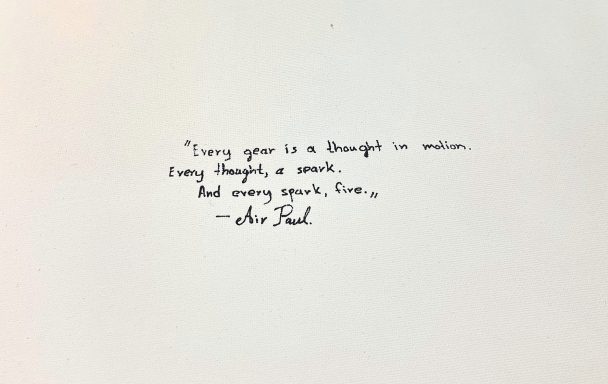 "Every gear is a thought in motion.
Every thought, a spark.
And every spark, fire.„
— Air Paul.